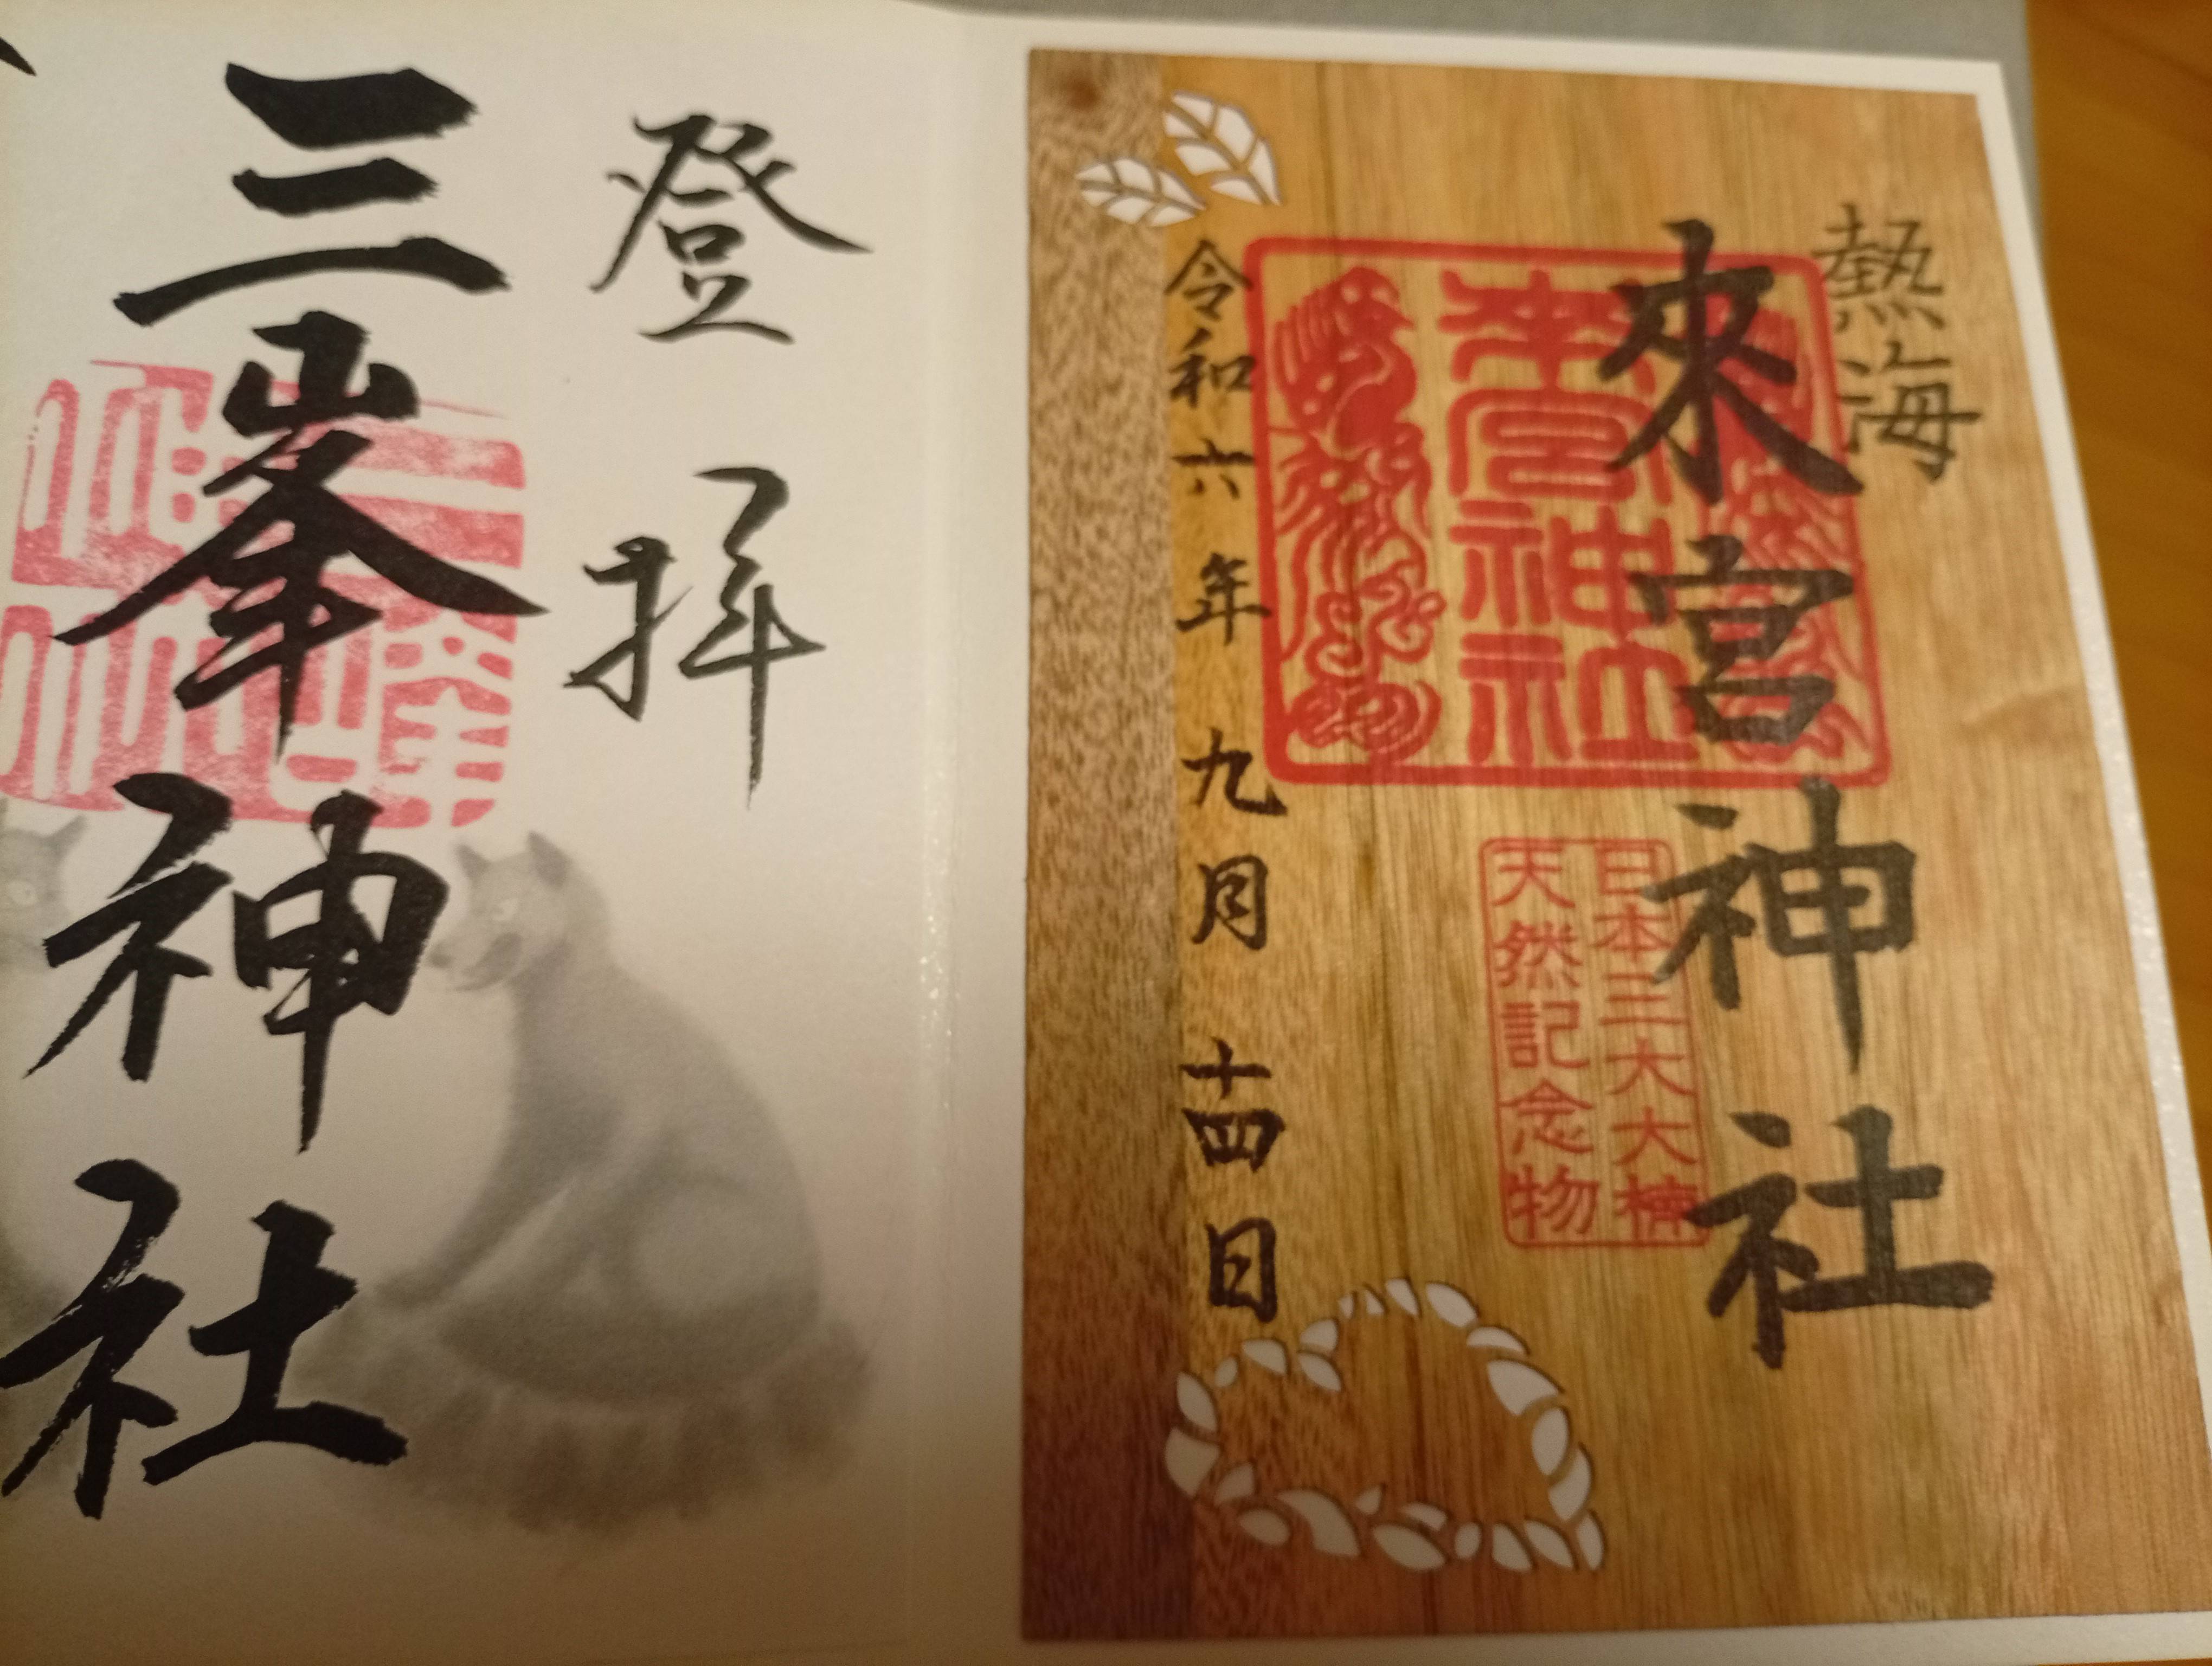 熱海
來宮神社
來宮神社
日本三大大楠
天然記念物
令和六年九月十四日
登拝
三峯神社